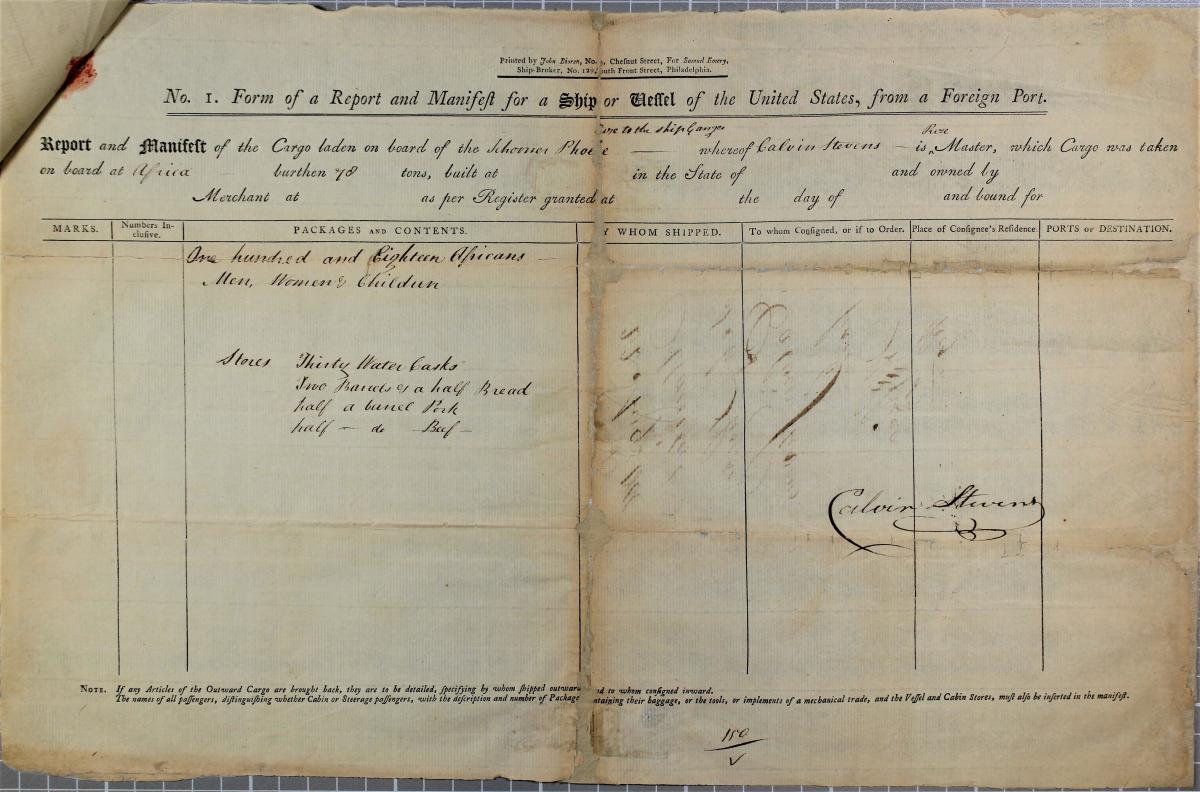 Printed by John Bioren, No. , Chesnut Street, For Samuel Emery,
Ship-Broker, No. 12 outh Front Street, Philadelphia.
No. 1. Form of a Report and Manifeſt for a Ship or Veſſel of the United States, from a Foreign Port.
to the ship Ganges Prize
Report and Manifeſt of the Cargo laden on board of the Schooner Phoebe whereof Calvin Stevens is Master, which Cargo was taken
on board at Africa burthen 78 tons, built at in the State of and owned by
Merchant at as per Register granted at the day of and bound for
MARKS. Numbers Inclusive. PACKAGES AND CONTENTS. Y WHOM SHIPPED. To whom Consigned, or if to Order. Place of Consignee's Residence. PORTS or DESTINATION.
One hundred and Eighteen Africans
Men, Women & Children
Stores Thirty Water Casks
Two Barrels & a half Bread
half a barrel Pork
half - do - Beef -
Calvin Stevens
NOTE. If any Articles of the Outward Cargo are brought back, they are to be detailed, ſpecifying by whom ſhipped outward nd to whom conſigned inward.
The names of all paſſengers, diſtinguiſhing whether Cabin or Steerage paſſengers, with the deſcription and number of Package ntaining their baggage, or the tools, or implements of a mechanical trade, and the Veſſel and Cabin Stores, muſt alſo be inſerted in the manifeſt.
150